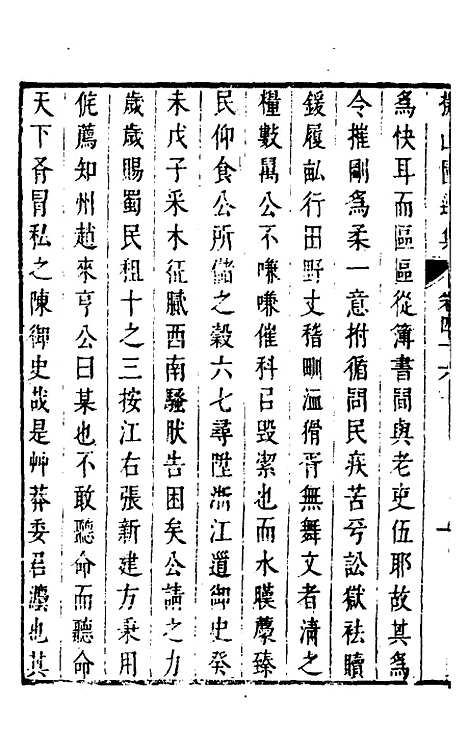 爲快耳而區區從簿書間與老吏伍耶故其爲
令摧剛爲柔一意拊循問民疾苦亏訟獄祛贖
鍰履畝行田野丈稽甽洫猾胥無舞文者清之
糧數萬公不嗛嗛催科㠯毀潔也而水暵麐臻
民仰食公所儲之穀六七尋陞浙江道御史癸
未戊子采木征膩西南騷肰告困矣公請之力
歲歲賜蜀民租十之三按江右張新建方秉用
侂薦知州趙來亨公曰某也不敢聽命而聽命
天下胥冐私之陳御史哉是艸莽委君瀳也其